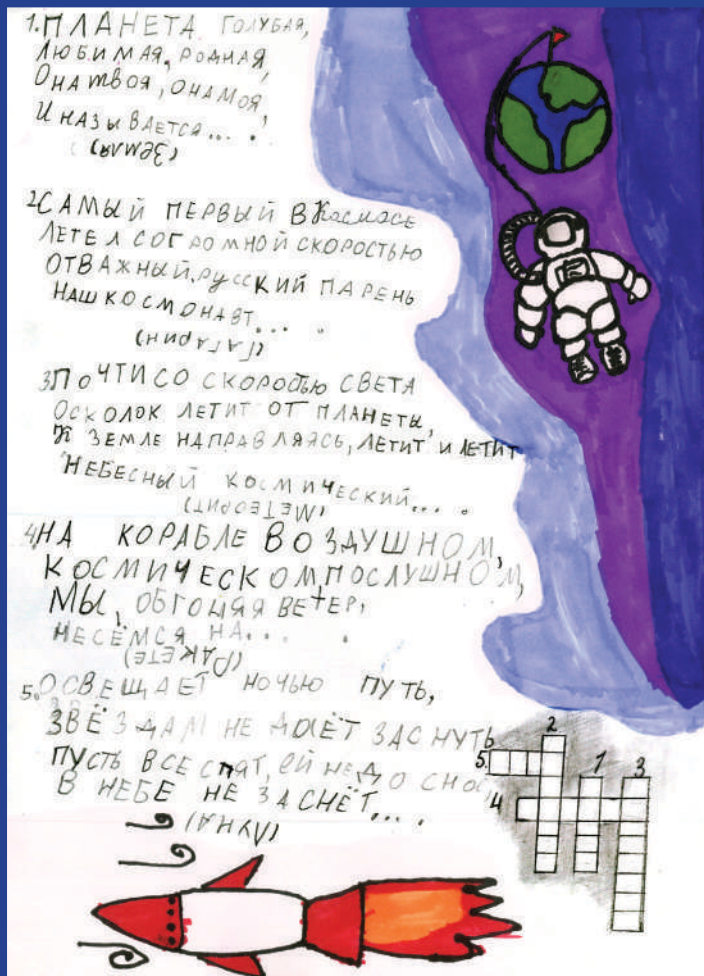 1. ПЛАНЕТА ГОЛУБАЯ,
ЛЮБИМАЯ, РОДНАЯ,
ОНА ТВОЯ, ОНА МОЯ,
И НАЗЫВАЕТСЯ... .
(ЗЕМЛЯ)
2 САМЫЙ ПЕРВЫЙ В Космосе
ЛЕТЕЛ С ОГРОМНОЙ СКОРОСТЬЮ
ОТВАЖНЫЙ, РУССКИЙ ПАРЕНЬ
НАШ КОСМОНАВТ... .
(ГАГАРИН)
3 ПОЧТИ СО СКОРОСТЬЮ СВЕТА
ОСКОЛОК ЛЕТИТ ОТ ПЛАНЕТЫ,
К ЗЕМЛЕ НАПРАВЛЯЯСЬ, ЛЕТИТ И ЛЕТИТ
НЕБЕСНЫЙ КОСМИЧЕСКИЙ... .
(МЕТЕОРИТ)
4, НА КОРАБЛЕ ВОЗДУШНОМ,
КОСМИЧЕСКОМ, ПОСЛУШНОМ,
МЫ, ОБГОНЯЯ ВЕТЕР,
НЕСЁМСЯ НА... .
(РАКЕТЕ)
5. ОСВЕЩАЕТ НОЧЬЮ ПУТЬ,
ЗВЁЗДАМ НЕ ДАЁТ ЗАСНУТЬ
ПУСТЬ ВСЕ СПЯТ, ЕЙ НЕ ДО СНА,
В НЕБЕ НЕ ЗАСНЁТ... .
(ЛУНА)
2
5 1 3
4